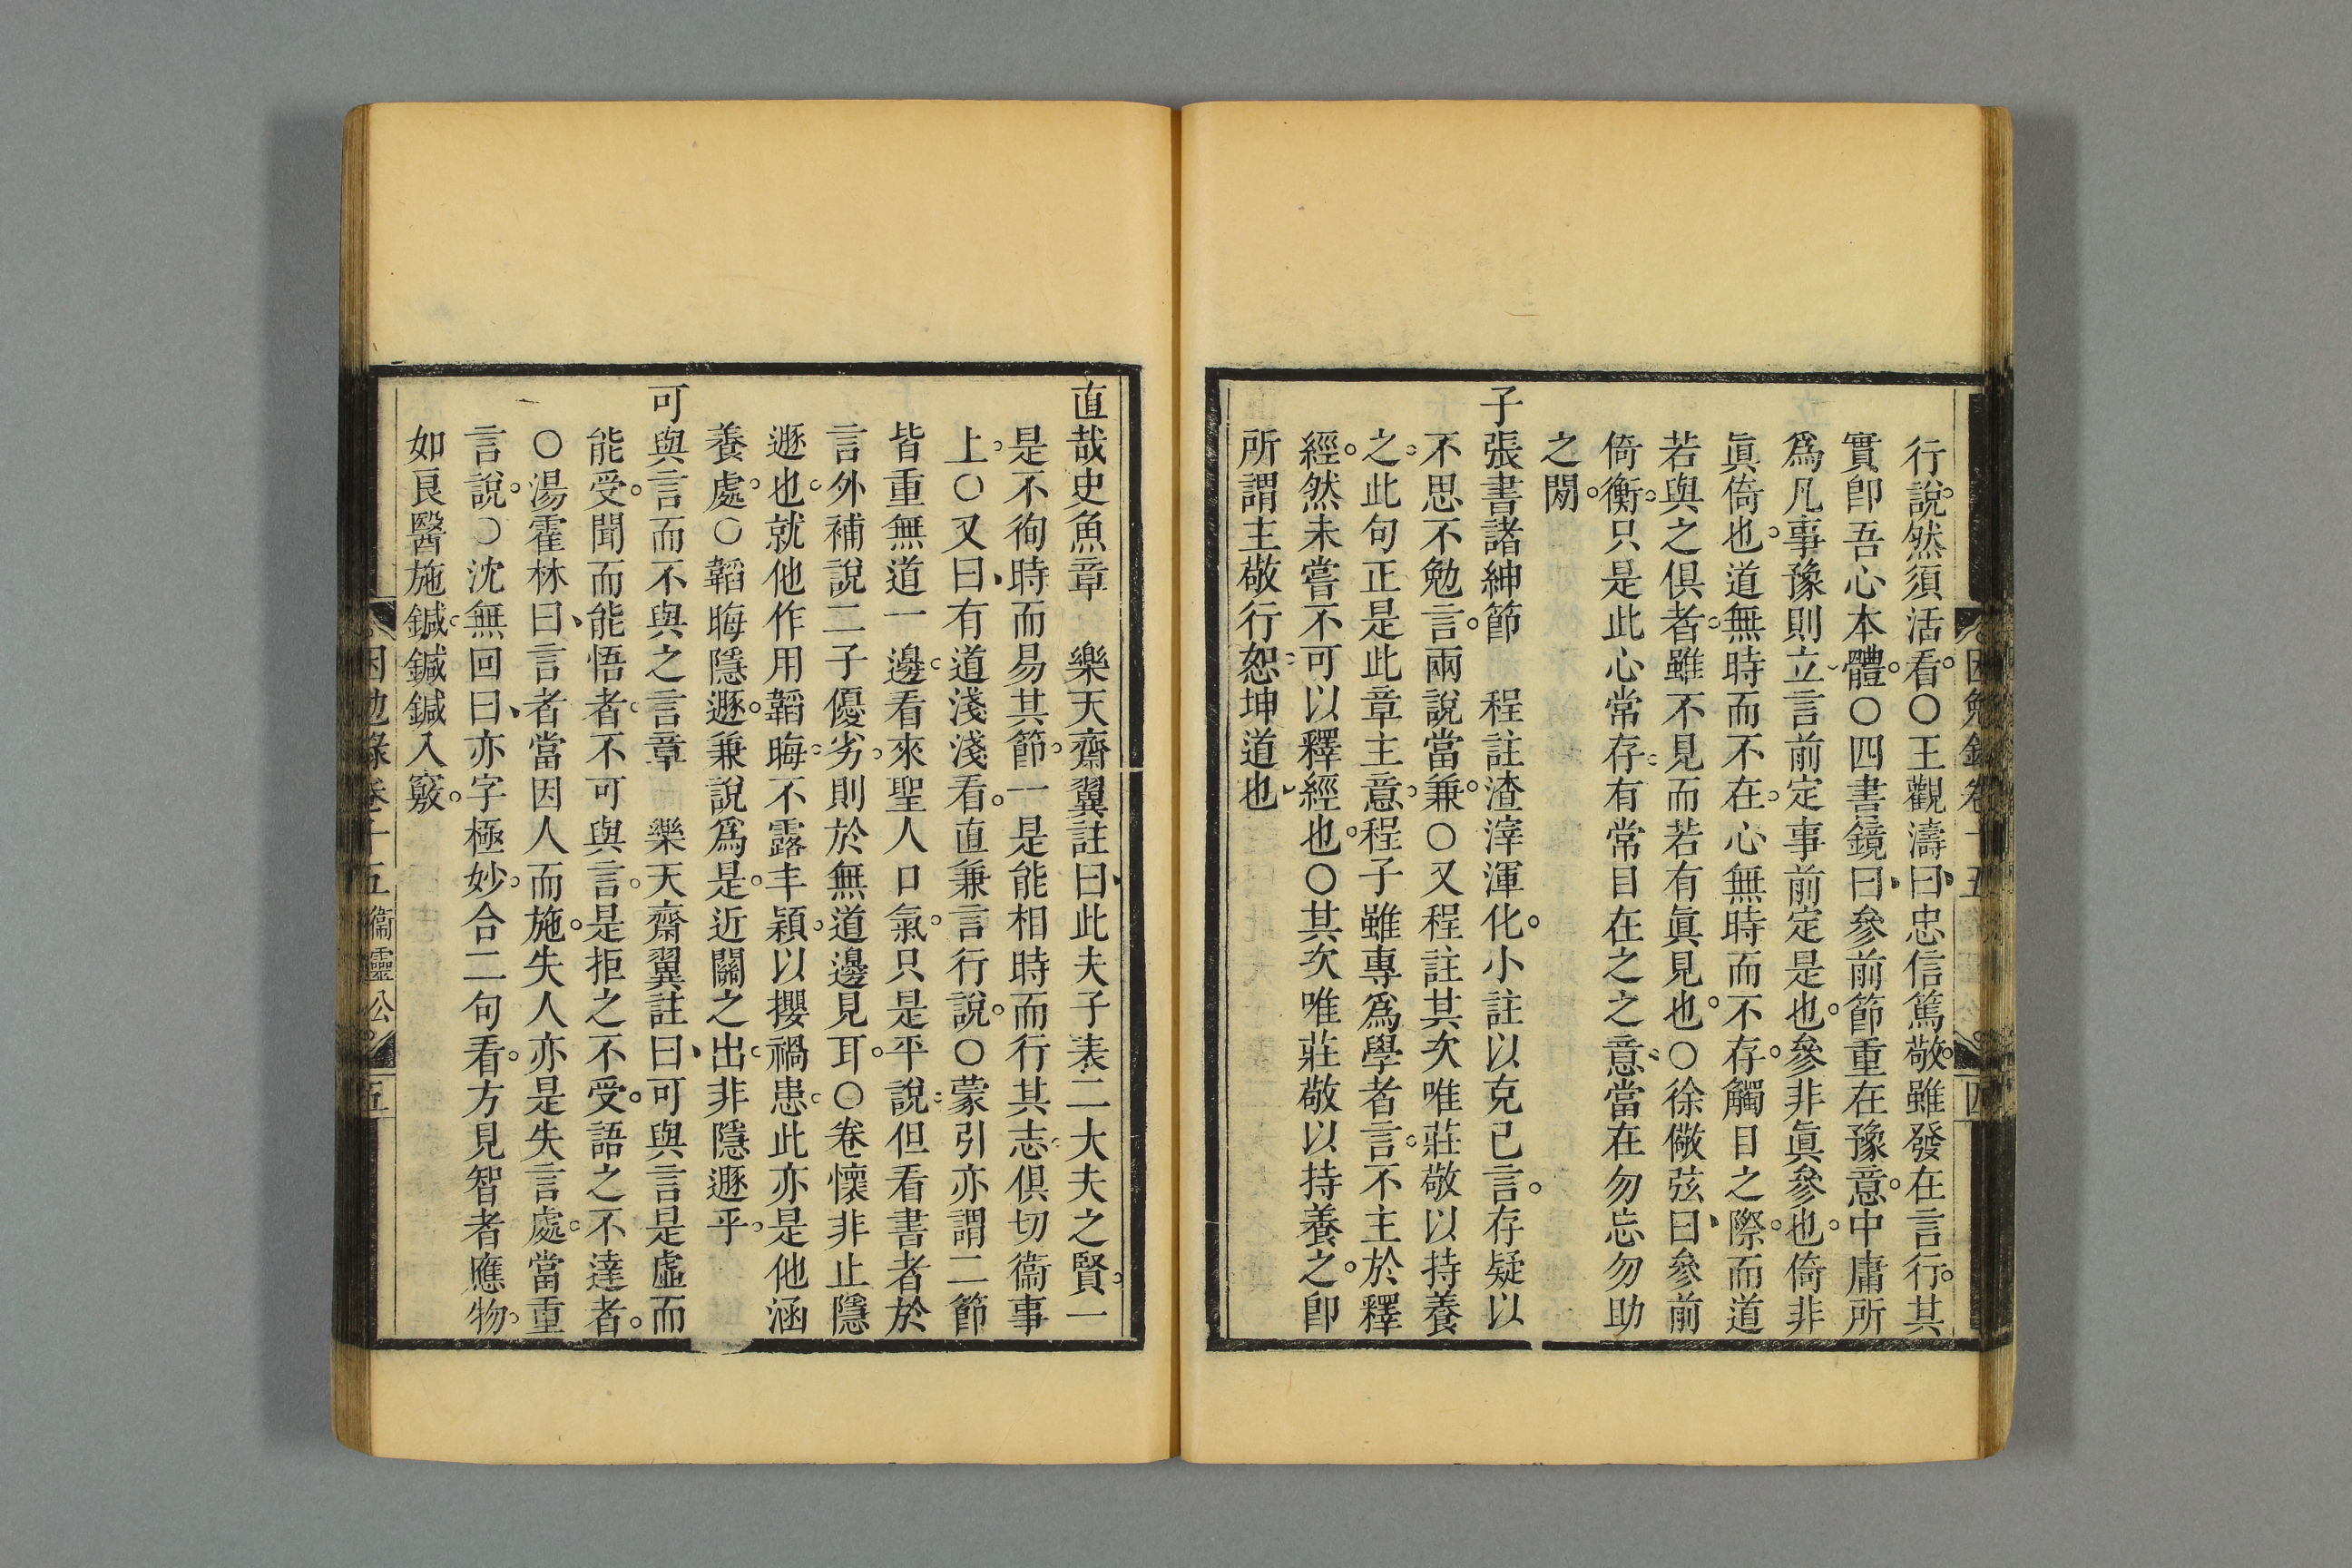 行說。然須活看。○王觀濤曰、忠信篤敬。雖發在言行。其
實卽吾心本體。○四書鏡曰、參前節重在豫意。中庸所
爲凡事豫則立、言前定事前定是也。參非眞參也。倚非
眞倚也。道無時而不在。心無時而不存。觸目之際。而道
若與之俱者。雖不見而若有眞見也。○徐儆弦曰、參前
倚衡。只是此心常存。有常目在之之意、當在勿忘勿助
之閒。
子張書諸紳節　程註渣滓渾化。小註以克己言。存疑以
不思不勉言。兩說當兼。○又程註其次唯莊敬以持養
之。此句正是此章主意。程子雖專爲學者言。不主於釋
經。然未嘗不可以釋經也。○其次唯莊敬以持養之。卽
所謂主敬行恕、坤道也、
困勉錄卷十五
四
直哉史魚章　樂天齋翼註曰、此夫子表二大夫之賢。一
是不徇時而易其節。一是能相時而行其志。俱切衞事
上。○又曰、有道淺淺看。直兼言行說。○蒙引亦謂二節
皆重無道一邊。看來聖人口氣。只是平說。但看書者於
言外補說二子優劣。則於無道邊見耳。○卷懷非止隱
遯也。就他作用韜晦。不露丰穎。以攖禍患。此亦是他涵
養處。○韜晦隱遯。兼說爲是。近關之出。非隱遯乎。
可與言而不與之言章　樂天齋翼註曰、可與言是虛而
能受。聞而能悟者。不可與言。是拒之不受。語之不達者。
○湯霍林曰、言者當因人而施。失人亦是失言處。當重
言說。○沈無回曰、亦字極妙。合二句看。方見智者應物。
如良醫施鍼。鍼鍼入竅。
困勉錄卷十五　衞靈公
五